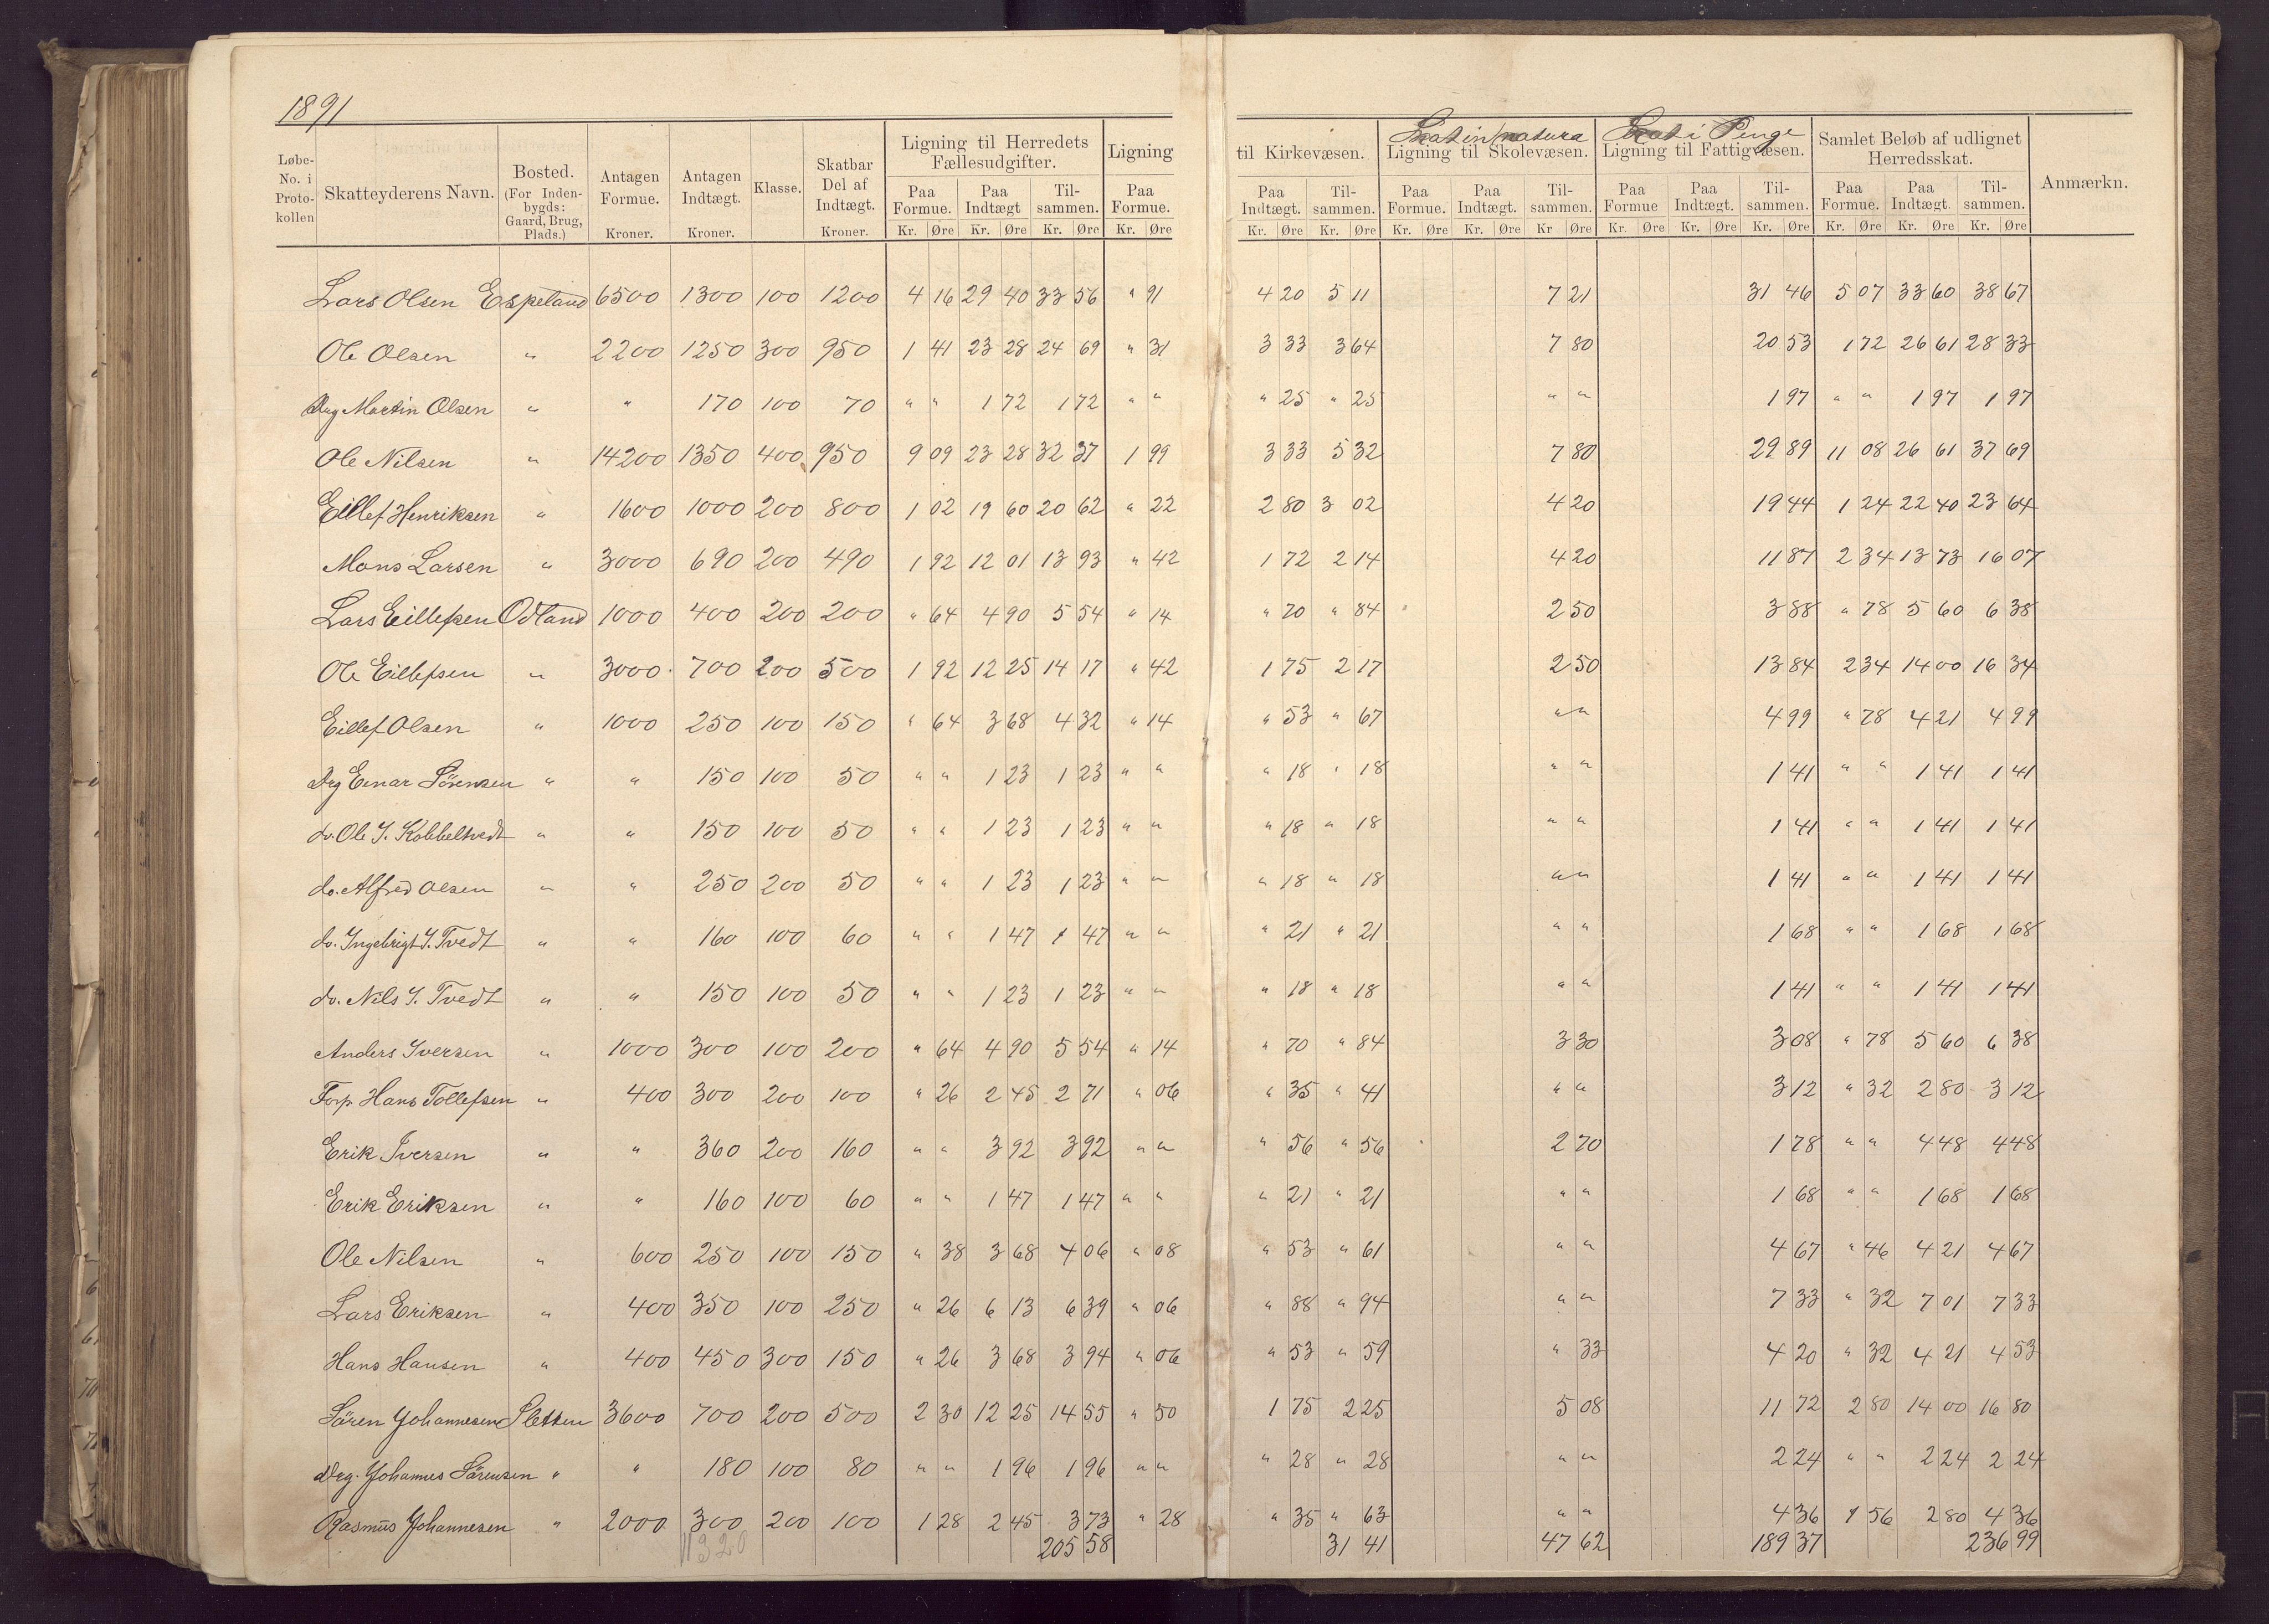 1891
Løbe-No. i Protokollen | Skatteyderens Navn. | Bosted. (For Indenbygds: Gaard, Brug, Plads.) | Antagen Formue. Kroner. | Antagen Indtægt. Kroner. | Klasse. | Skatbar Del af Indtægt. Kroner. | Ligning til Herredets Fællesudgifter. Paa Formue. Kr. Øre | Paa Indtægt Kr. Øre | Tilsammen. Kr. Øre | Ligning Paa Formue. Kr. Øre | til Kirkevæsen. Paa Indtægt. Kr. Øre | Tilsammen. Kr. Øre | Skat in natura Ligning til Skolevæsen. Paa Formue. Kr. Øre | Paa Indtægt. Kr. Øre | Tilsammen. Kr Øre | Skat i Penge Ligning til Fattigvæsen. Paa Formue Kr. Øre | Paa Indtægt. Kr. Øre | Tilsammen. Kr. Øre | Samlet Beløb af udlignet Herredsskat. Paa Formue. Kr. Øre | Paa Indtægt. Kr. Øre | Tilsammen. Kr. Øre | Anmærkn.
Lars Olsen Espeland 6500 1300 100 1200 4 16 29 40 33 56 " 91 4 20 5 11 7 21 31 46 5 07 33 60 38 67
Ole Olsen " 2200 1250 300 950 1 41 23 28 24 69 " 31 3 33 3 64 7 80 20 53 1 72 26 61 28 33
Drg Martin Olsen " " 170 100 70 " " 1 72 1 72 " " " 25 " 25 " " 1 97 " " 1 97 1 97
Ole Nilsen " 14200 1350 400 950 9 09 23 28 32 37 1 99 3 33 5 32 7 80 29 89 11 08 26 61 37 69
Eillef Henriksen " 1600 1000 200 800 1 02 19 60 20 62 " 22 2 80 3 02 4 20 19 44 1 24 22 40 23 64
Mons Larsen " 3000 690 200 490 1 92 12 01 13 93 " 42 1 72 2 14 4 20 11 87 2 34 13 73 16 07
Lars Eillefsen Odland 1000 400 200 200 " 64 4 90 5 54 " 14 " 70 " 84 2 50 3 88 " 78 5 60 6 38
Ole Eillefsen " 3000 700 200 500 1 92 12 25 14 17 " 42 1 75 2 17 2 50 13 84 2 34 14 00 16 34
Eillef Olsen " 1000 250 100 150 " 64 3 68 4 32 " 14 " 53 " 67 " " 4 99 " 78 4 21 4 99
Drg Einar Sörensen " " 150 100 50 " " 1 23 1 23 " " " 18 " 18 " " 1 41 " " 1 41 1 41
do. Ole J. Kobbeltvedt " " 150 100 50 " " 1 23 1 23 " " " 18 " 18 " " 1 41 " " 1 41 1 41
do. Alfred Olsen " " 250 200 50 " " 1 23 1 23 " " " 18 " 18 " " 1 41 " " 1 41 1 41
do. Ingebrigt J. Tvedt " " 160 100 60 " " 1 47 1 47 " " " 21 " 21 " " 1 68 " " 1 68 1 68
do. Nils J. Tvedt " " 150 100 50 " " 1 23 1 23 " " " 18 " 18 " " 1 41 " " 1 41 1 41
Anders Iversen " 1000 300 100 200 " 64 4 90 5 54 " 14 " 70 " 84 3 30 3 08 " 78 5 60 6 38
Forp Hans Tollefsen " 400 300 200 100 " 26 2 45 2 71 " 06 " 35 " 41 " " 3 12 " 32 2 80 3 12
Erik Iversen " " 360 200 160 " " 3 92 3 92 " " " 56 " 56 2 70 1 78 " " 4 48 4 48
Erik Eriksen " " 160 100 60 " " 1 47 1 47 " " " 21 " 21 " " 1 68 " " 1 68 1 68
Ole Nilsen " 600 250 100 150 " 38 3 68 4 06 " 08 " 53 " 61 " " 4 67 " 46 4 21 4 67
Lars Eriksen " 400 350 100 250 " 26 6 13 6 39 " 06 " 88 " 94 " " 7 33 " 32 7 01 7 33
Hans Hansen " 400 450 300 150 " 26 3 68 3 94 " 06 " 53 " 59 " 33 4 20 " 32 4 21 4 53
Sören Johannesen Sletten 3600 700 200 500 2 30 12 25 14 55 " 50 1 75 2 25 5 08 11 72 2 80 14 00 16 80
Drg. Johannes Sörensen " " 180 100 80 " " 1 96 1 96 " " " 28 " 28 " " 2 24 " " 2 24 2 24
Rasmus Johannesen " 2000 300 200 100 1 28 2 45 3 73 " 28 " 35 " 63 " " 4 36 1 56 2 80 4 36
11320 205 58 31 41 47 62 189 37 236 99